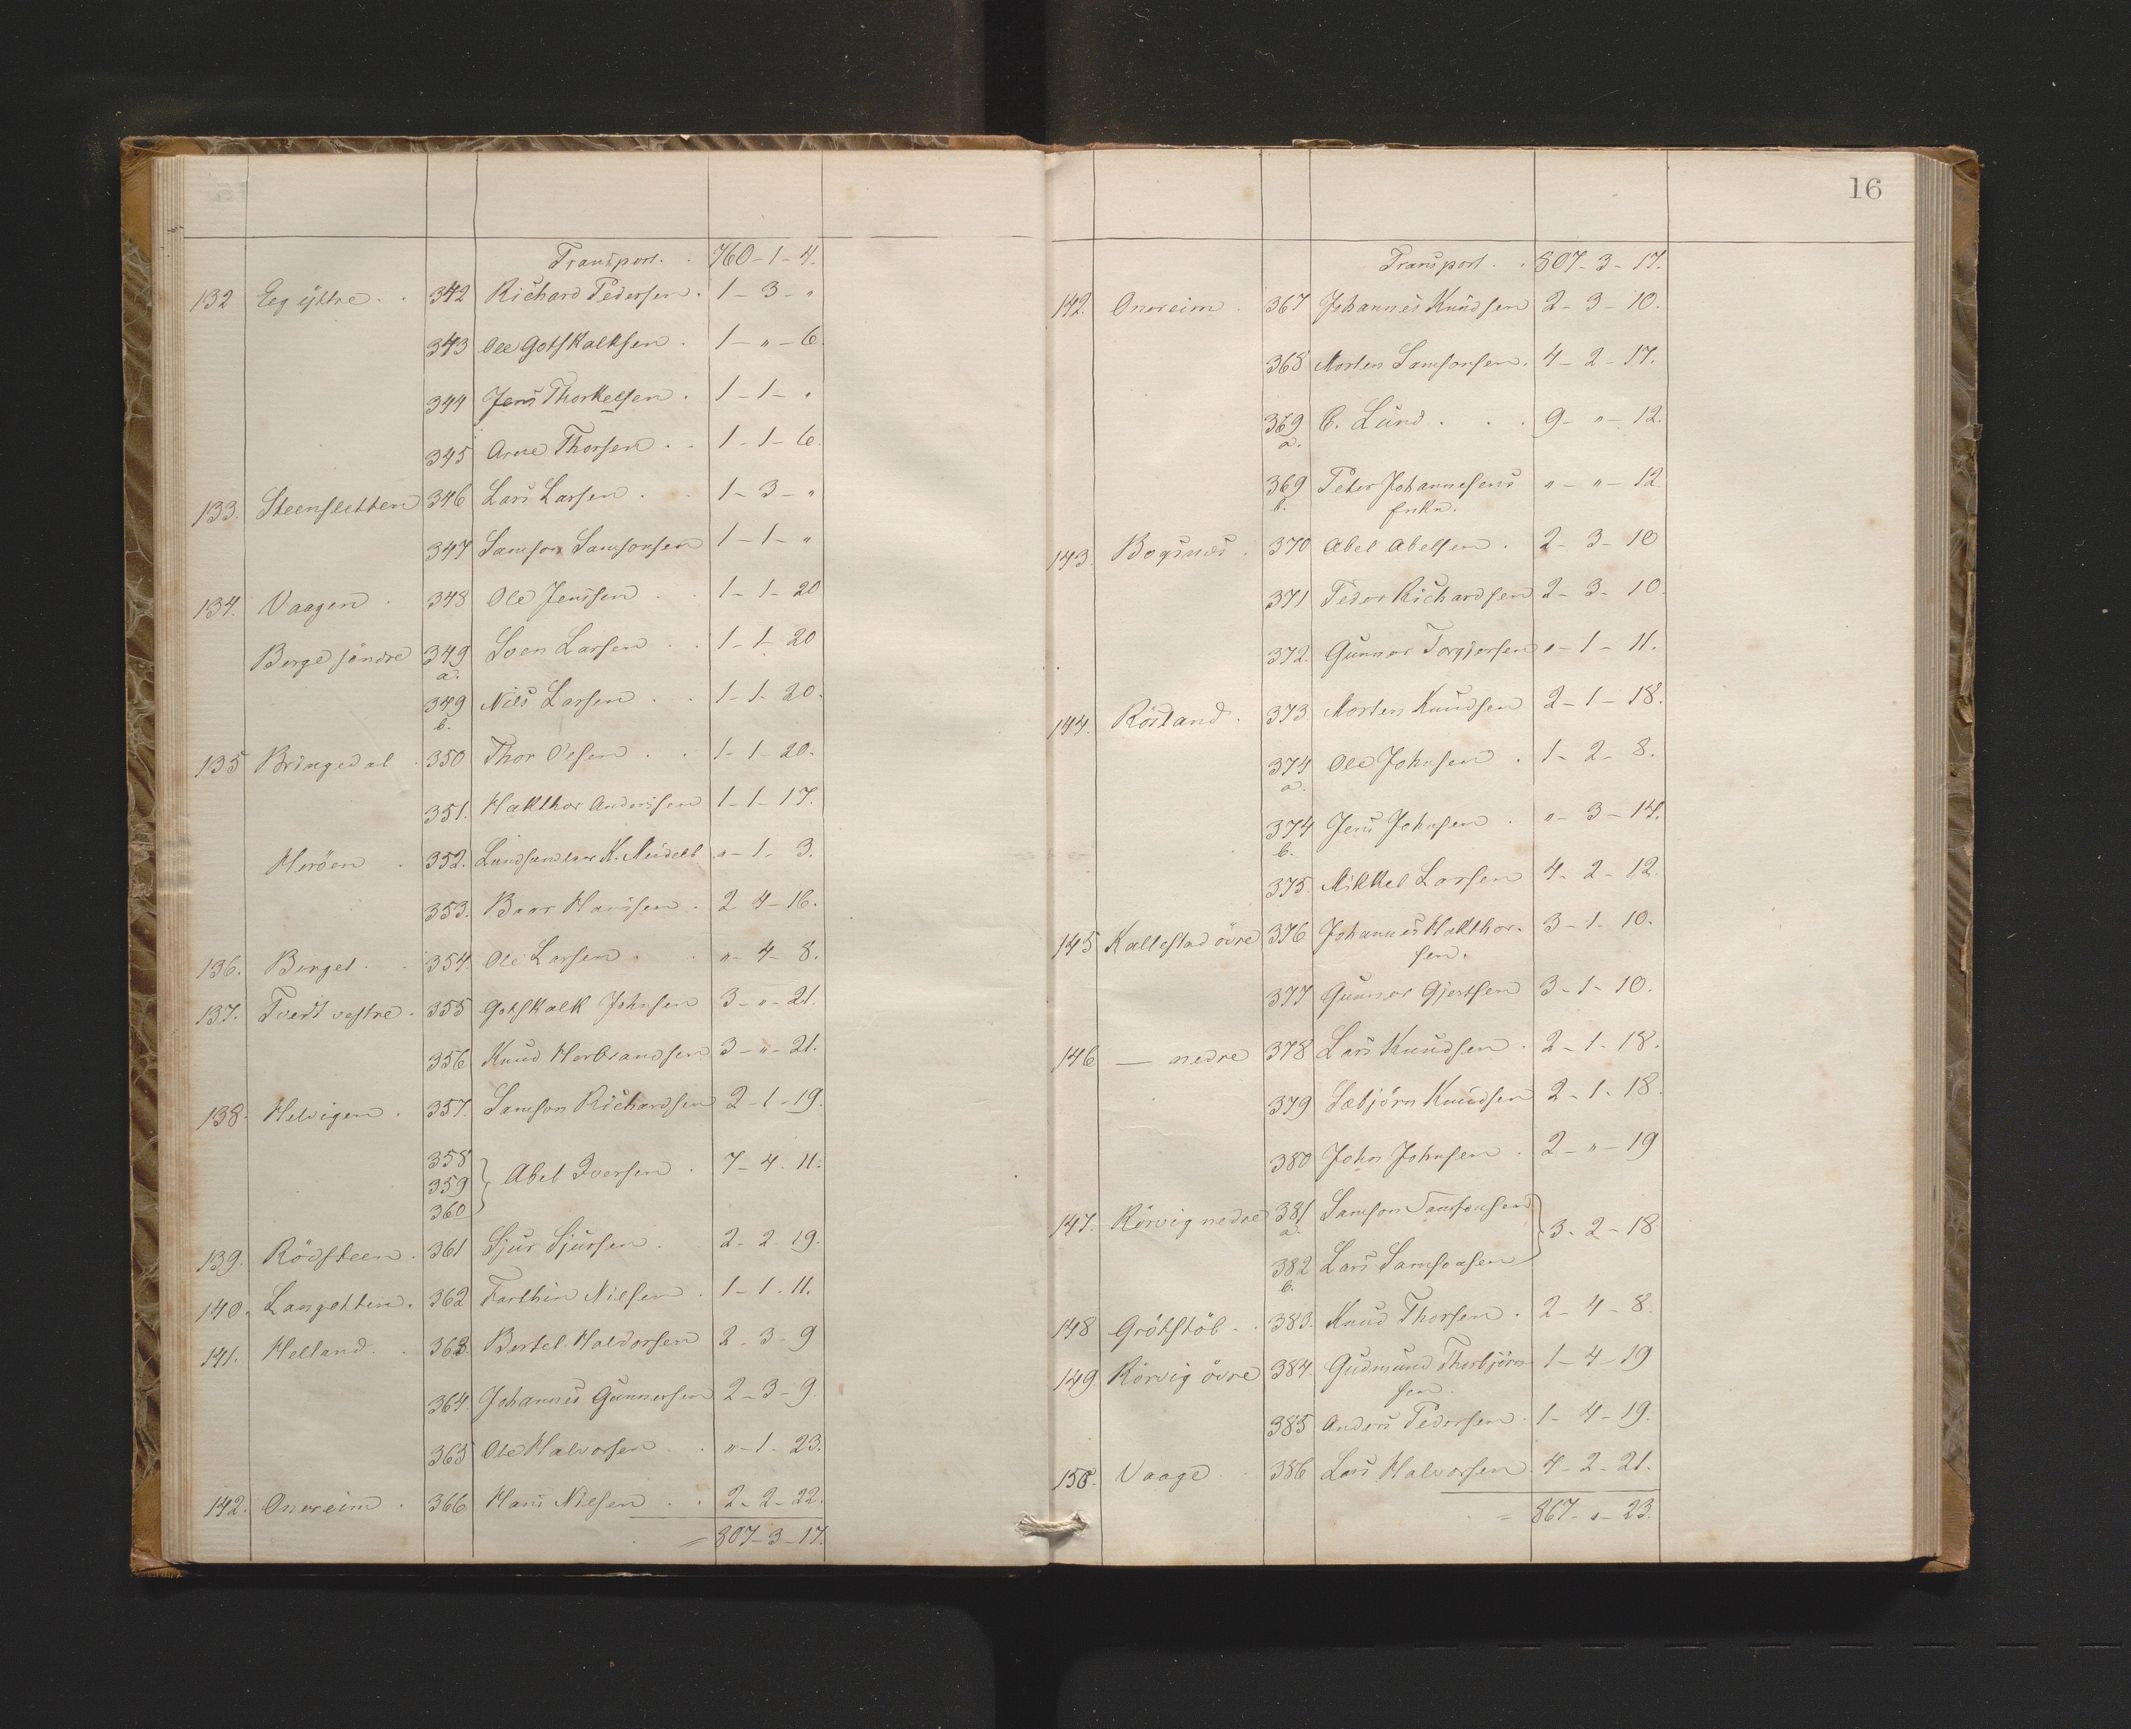 Transport. . 760-1-4.
132 Eeg yttre. . 342 Richard Pedersen. 1-3-"
343 Ole Gotskalksen . 1-"-6.
344 Jens Thorkelsen . 1-1-"
345 Arne Thorsen . . 1-1-6.
133. Steensletten 346 Lars Larsen . . 1-3-"
347 Samson Samsonsen 1-1-"
134. Vaagen . 348 Ole Jenssen . . 1-1-20
Berge søndre 349 a. Sven Larsen . . 1-1-20
349 b. Nils Larsen . . 1-1-20.
135 Bringedal . 350 Thor Olsen . . 1-1-20.
351. Hakthor Anderssen 1-1-17.
Herøen . 352. K. Meidell "-1-3.
353. Baar Hanssen . 2-4-16.
136. Berget. . 354. Ole Larsen . . "-4-8.
137. Tvedt vestre . 355 Gotskalk Johnsen 3-"-21.
356 Knud Herbrandsen 3-"-21.
138. Helvigen . 357. Samson Richardsen 2-1-19.
358
359 } Abel Iversen . 7-4-11.
360
139. Rødsteen . 361 Sjur Sjursen . 2-2-19.
140. Langetten. 362 Farthin Nilsen . 1-1-11.
141. Helland. . 363. Bertel Haldorsen 2-3-9
364 Johannes Gunnersen 2-3-9.
365 Ole Halvorsen . . "-1-23.
142. Onereim . 366 Hans Nilsen . . 2-2-22.
= 807-3-17.
16
Transport . . 807-3-17.
142. Onereim . 367 Johannes Knudsen 2-3-10.
368 Morten Samsonsen. 4-2-17.
369 a. C. Lund . . . 9-"-12.
369 b. Peter Johannesens "-"-12
Enke.
143. Bogsnæs . 370 Abel Abelsen . 2-3-10
371 Peder Richardsen 2-3-10.
372. Gunnar Torgjersen "-1-11.
144. Røsland . 373. Morten Knudsen 2-1-18.
374 a. Ole Johnsen . 1-2-8.
374 b. Jens Johnsen . "-3-14.
375. Mikkel Larsen 4-2-12.
145 Kallestad øvre 376 Johannes Hakthor- 3-1-10.
sen.
377 Gunnar Gjertsen 3-1-10.
146 — nedre 378 Lars Knudsen . 2-1-18.
379 Sæbjørn Knudsen 2-1-18.
380 John Johnsen . 2-"-19
147. Rørvig nedre 381 a. Samson Samsonsen
} 3-2-18
382 b. Lars Samsonsen
148 Grøtstøb . . 383. Knud Thorsen . 2-4-8.
149. Rørvig øvre 384. Gudmund Thorbjørn- 1-4-19
sen.
385 Anders Pedersen . 1-4-19.
150. Vaage . . 386 Lars Halvorsen . 4-2-21.
= 867-"-23.